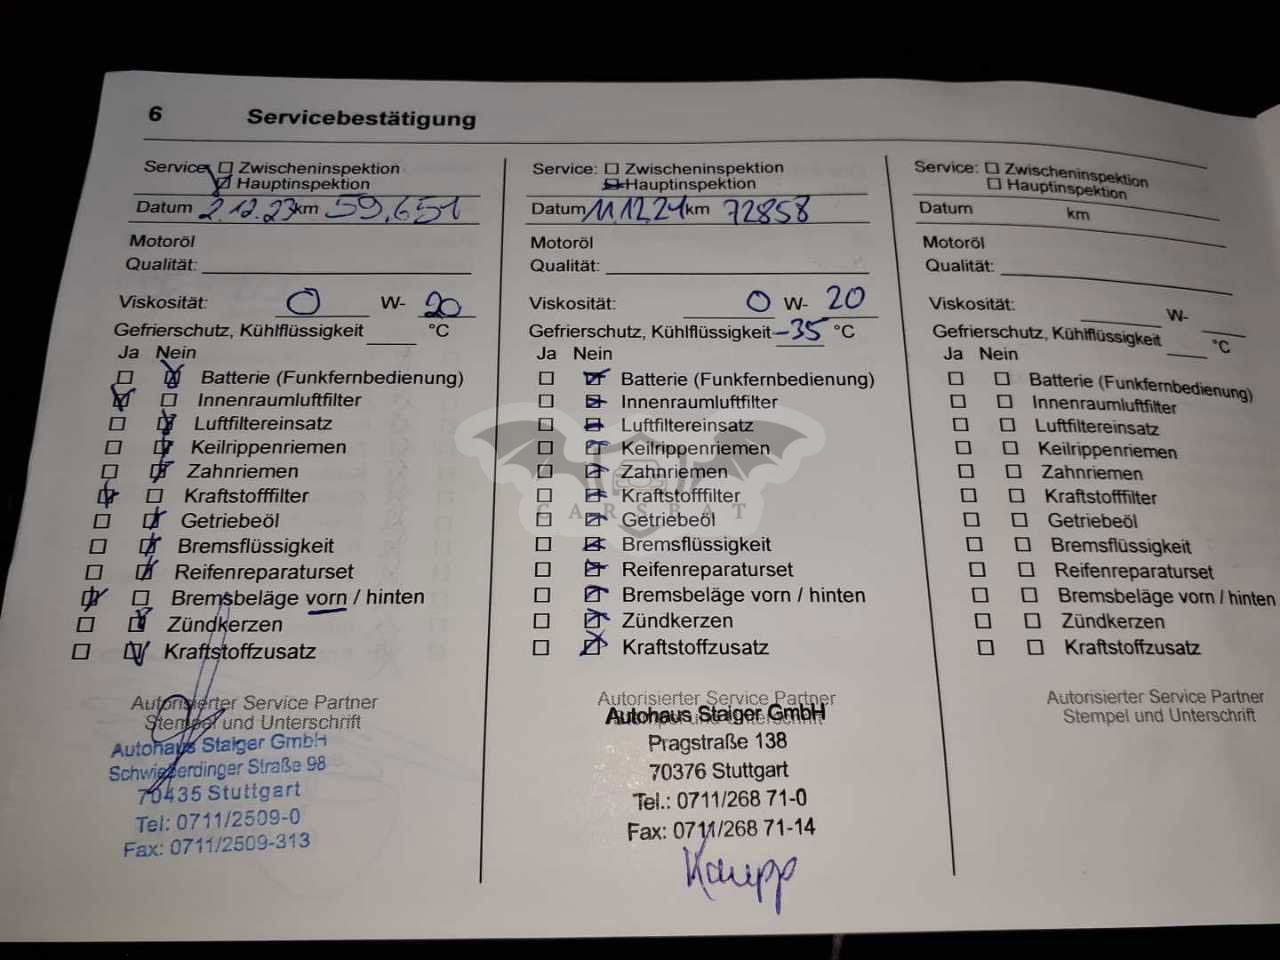 6 Servicebestätigung
Service: Zwischeninspektion
Hauptinspektion
Datum 2.12.23 km 59.651
Motoröl
Qualität:
Viskosität: 0 W- 20
Gefrierschutz, Kühlflüssigkeit °C
Ja Nein
Batterie (Funkfernbedienung)
Innenraumluftfilter
Luftfiltereinsatz
Keilrippenriemen
Zahnriemen
Kraftstofffilter
Getriebeöl
Bremsflüssigkeit
Reifenreparaturset
Bremsbeläge vorn / hinten
Zündkerzen
Kraftstoffzusatz
Autorisierter Service Partner
Stempel und Unterschrift
Autohaus Staiger GmbH
Schwieberdinger Straße 98
70435 Stuttgart
Tel: 0711/2509-0
Fax: 0711/2509-313
Service: Zwischeninspektion
Hauptinspektion
Datum 11.12.24 km 72858
Motoröl
Qualität:
Viskosität: 0 W- 20
Gefrierschutz, Kühlflüssigkeit -35 °C
Ja Nein
Batterie (Funkfernbedienung)
Innenraumluftfilter
Luftfiltereinsatz
Keilrippenriemen
Zahnriemen
Kraftstofffilter
Getriebeöl
Bremsflüssigkeit
Reifenreparaturset
Bremsbeläge vorn / hinten
Zündkerzen
Kraftstoffzusatz
Autorisierter Service Partner
Stempel und Unterschrift
Autohaus Staiger GmbH
Pragstraße 138
70376 Stuttgart
Tel.: 0711/268 71-0
Fax: 0711/268 71-14
Service: Zwischeninspektion
Hauptinspektion
Datum km
Motoröl
Qualität:
Viskosität: W-
Gefrierschutz, Kühlflüssigkeit °C
Ja Nein
Batterie (Funkfernbedienung)
Innenraumluftfilter
Luftfiltereinsatz
Keilrippenriemen
Zahnriemen
Kraftstofffilter
Getriebeöl
Bremsflüssigkeit
Reifenreparaturset
Bremsbeläge vorn / hinten
Zündkerzen
Kraftstoffzusatz
Autorisierter Service Partner
Stempel und Unterschrift
CARSBAT